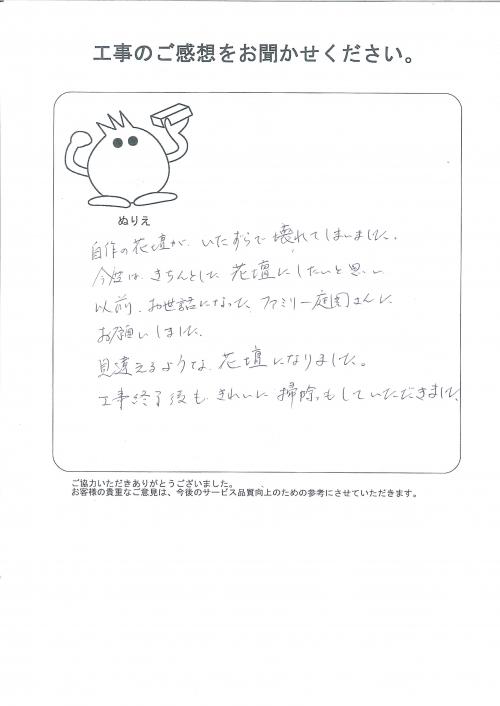 工事のご感想をお聞かせください。
ぬりえ
自作の花壇が、いたずらで壊れてしまいました。
今度は、きちんとした花壇にしたいと思い
以前、お世話になった、ファミリー庭園さんに
お願いしました。
見違えるような、花壇になりました。
工事終了後も、きれいに掃除もしていただきました。
ご協力いただきありがとうございました。
お客様の貴重なご意見は、今後のサービス品質向上のための参考にさせていただきます。